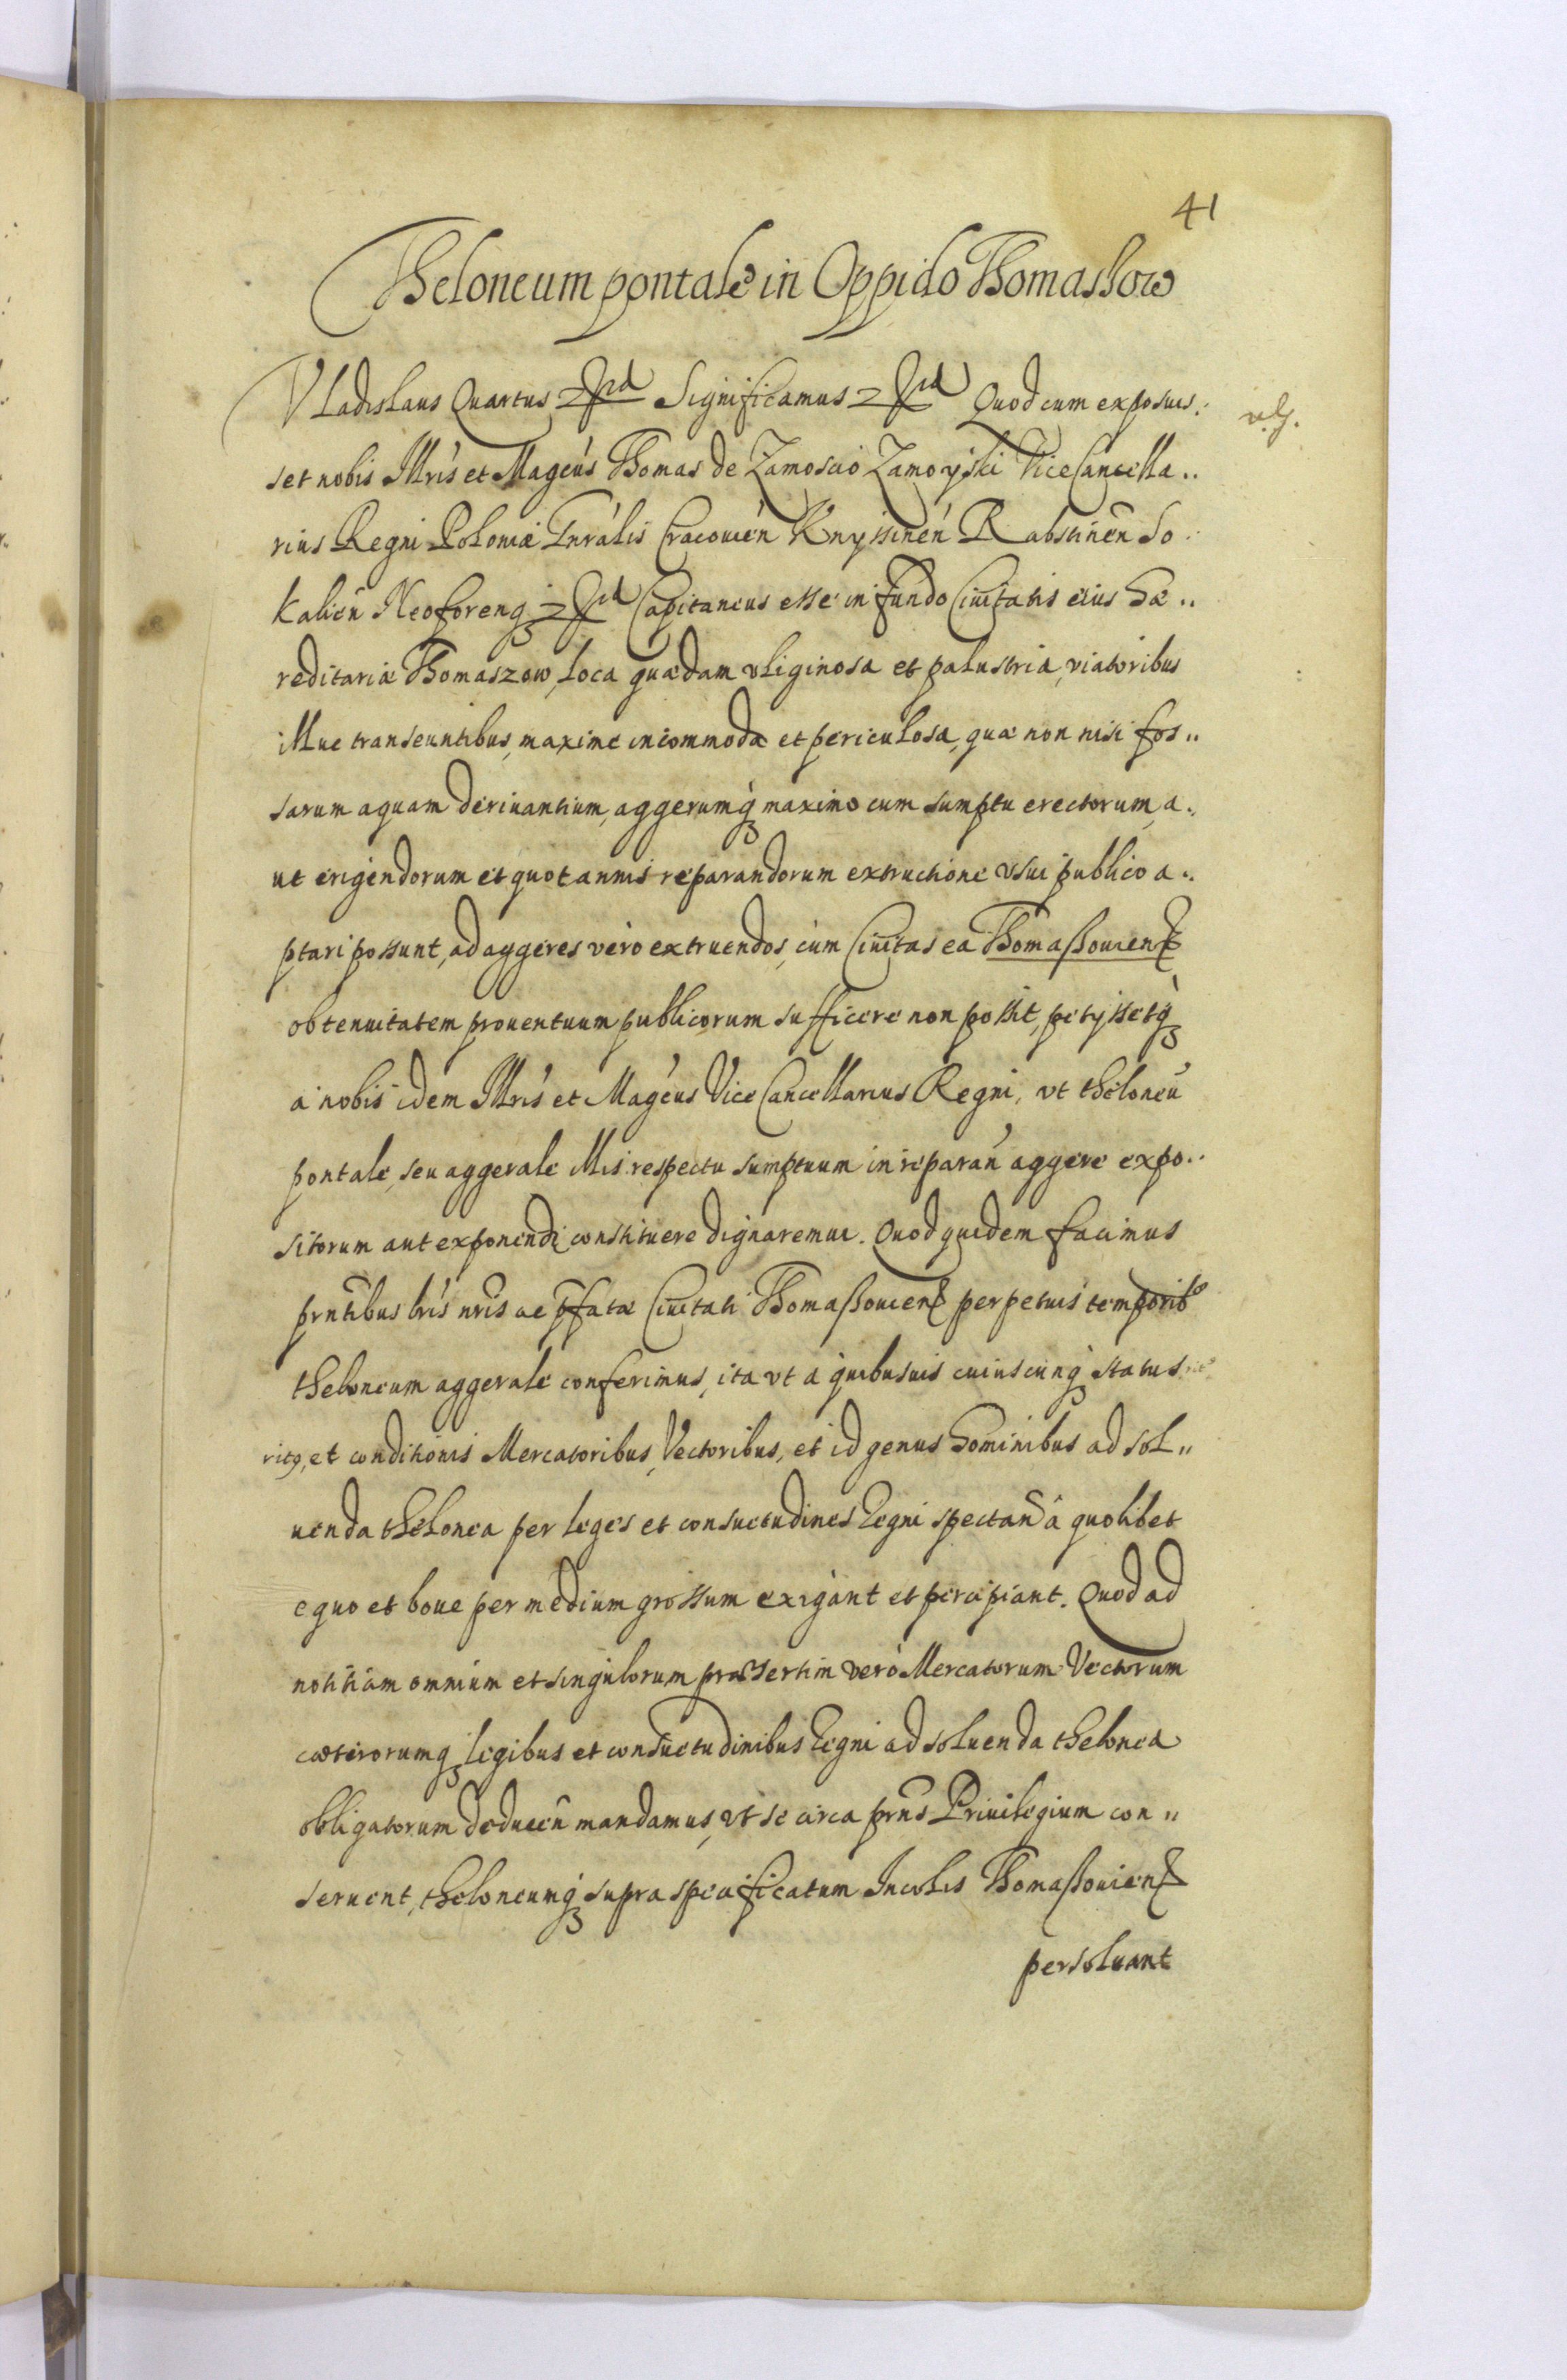 41
Theloneum pontale in Oppido Thomassow
Vladislaus Quartus Significamus Quod cum exposuis..
set nobis Illris et Magcus Thomas de Zamoscio Zamoyski Vice Cancella..
rius Regni Poloniæ Gnralis Cracouien Knyssinen Rabstinen So..
kalien Neoforenq Capitaneus esse in fundo Ciuitatis eius hæ..
reditariæ Thomaszow, loca quædam vliginosa et palustria, viatoribus
illuc transeuntibus, maxime incommoda et periculosa, quæ non nisi fos..
sarum aquam deriuantium, aggerumq maximo cum sumptu erectorum, a..
ut erigendorum et quotannis reparandorum extructione vsui publico a..
ptari possunt, ad aggeres vero extruendos, cum Ciuitas ea Thomaßouien
ob tenuitatem prouentuum publicorum sufficere non possit, petyssetq
a nobis idem Illris et Magcus Vice Cancellarius Regni, vt theloneu
pontale, seu aggerale illis respectu sumptuum in reparan aggere expo..
sitorum aut exponendi constituere dignaremur. Quod quidem facimus
prntibus lris nris ac pfatæ Ciuitati Thomaßouien perpetuis temporib
theloneum aggerale conferimus, ita vt a quibusuis cuiuscunq status
et conditionis Mercatoribus, Vectoribus, et id genus hominibus ad sol..
uenda thelonea per leges et consuetudines Regni spectan a quolibet
equo et boue per medium grossum exigant et percipiant. Quod ad
notitiam omnium et singulorum præsertim vero Mercatorum Vectorum
cæterorumq legibus et consuetudinibus Regni ad soluenda thelonea
obligatorum deducen mandamus, vt se circa prns Priuilegium con..
seruent, theloneumq supra specificatum Incolis Thomaßouien
persoluant